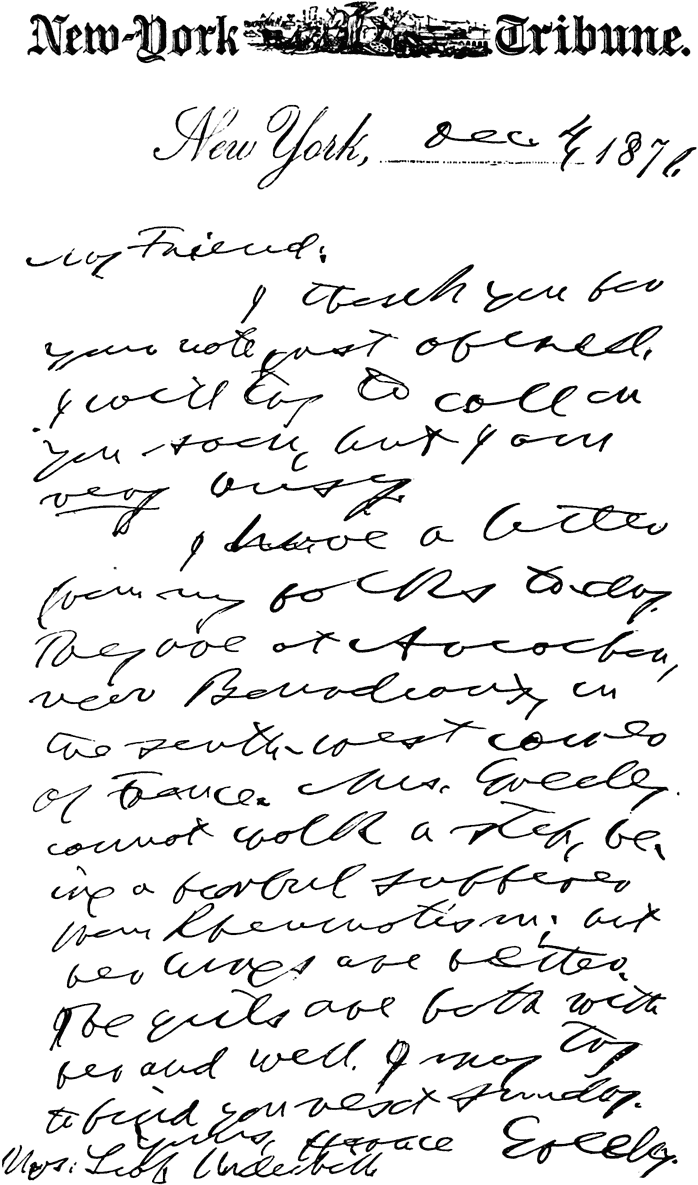 New-York Tribune.
New York, Dec. 4, 1871.
My Friend:
I thank you for
your note just opened.
I will try to call on
you soon, but I am
very busy.
I have a letter
from my folks to-day.
They are at Arcachon,
near Bourdeaux, in
the south-west corner
of France. Mrs. Greeley
cannot walk a step, be-
ing a fearful sufferer
from Rheumatism; but
her lungs are better.
The girls are both with
her and well. I may try
to find you next Sunday.
Yours, Horace Greeley.
Mrs. Leah Underhill